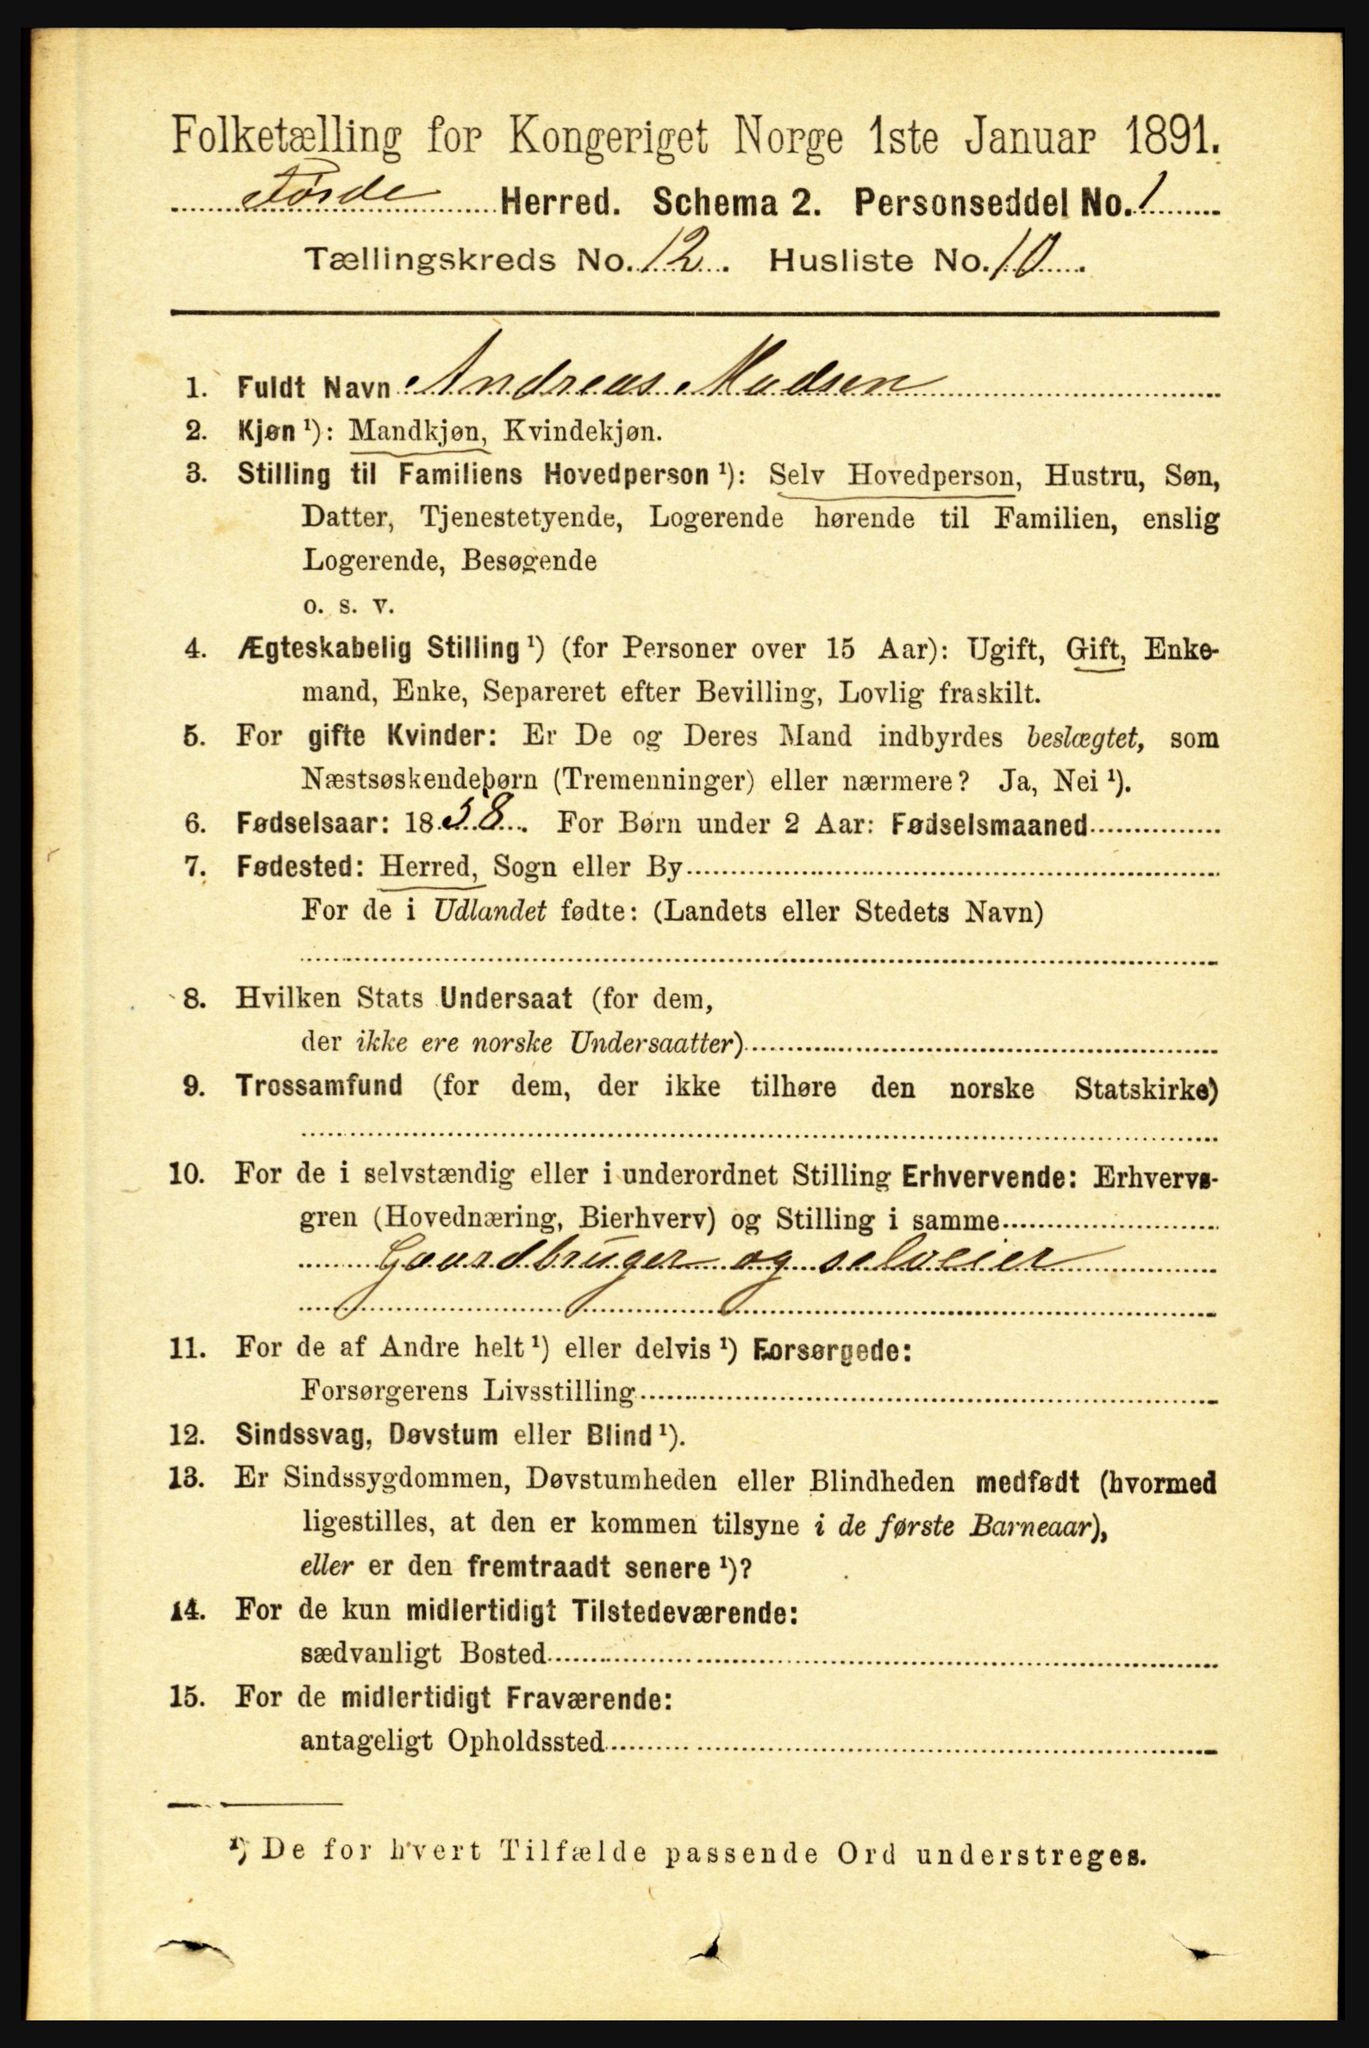 Folketælling for Kongeriget Norge 1ste Januar 1891.
Førde Herred. Schema 2. Personseddel No. 1
Tællingskreds No. 12. Husliste No. 10.
1. Fuldt Navn Andreas Madsen
2. Kjøn ¹): Mandkjøn, Kvindekjøn.
3. Stilling til Familiens Hovedperson ¹): Selv Hovedperson, Hustru, Søn,
Datter, Tjenestetyende, Logerende hørende til Familien, enslig
Logerende, Besøgende
o. s. v.
4. Ægteskabelig Stilling ¹) (for Personer over 15 Aar): Ugift, Gift, Enke-
mand, Enke, Separeret efter Bevilling, Lovlig fraskilt.
5. For gifte Kvinder: Er De og Deres Mand indbyrdes beslægtet, som
Næstsøskendebørn (Tremenninger) eller nærmere? Ja, Nei ¹).
6. Fødselsaar: 1838. For Børn under 2 Aar: Fødselsmaaned
7. Fødested: Herred, Sogn eller By
For de i Udlandet fødte: (Landets eller Stedets Navn)
8. Hvilken Stats Undersaat (for dem,
der ikke ere norske Undersaatter)
9. Trossamfund (for dem, der ikke tilhøre den norske Statskirke)
10. For de i selvstændig eller i underordnet Stilling Erhvervende: Erhvervs-
gren (Hovednæring, Bierhverv) og Stilling i samme
Gaardbruger og selveier
11. For de af Andre helt ¹) eller delvis ¹) Forsørgede:
Forsørgerens Livsstilling
12. Sindssvag, Døvstum eller Blind ¹).
13. Er Sindssygdommen, Døvstumheden eller Blindheden medfødt (hvormed
ligestilles, at den er kommen tilsyne i de første Barneaar),
eller er den fremtraadt senere ¹)?
14. For de kun midlertidigt Tilstedeværende:
sædvanligt Bosted
15. For de midlertidigt Fraværende:
antageligt Opholdssted
¹) De for hvert Tilfælde passende Ord understreges.